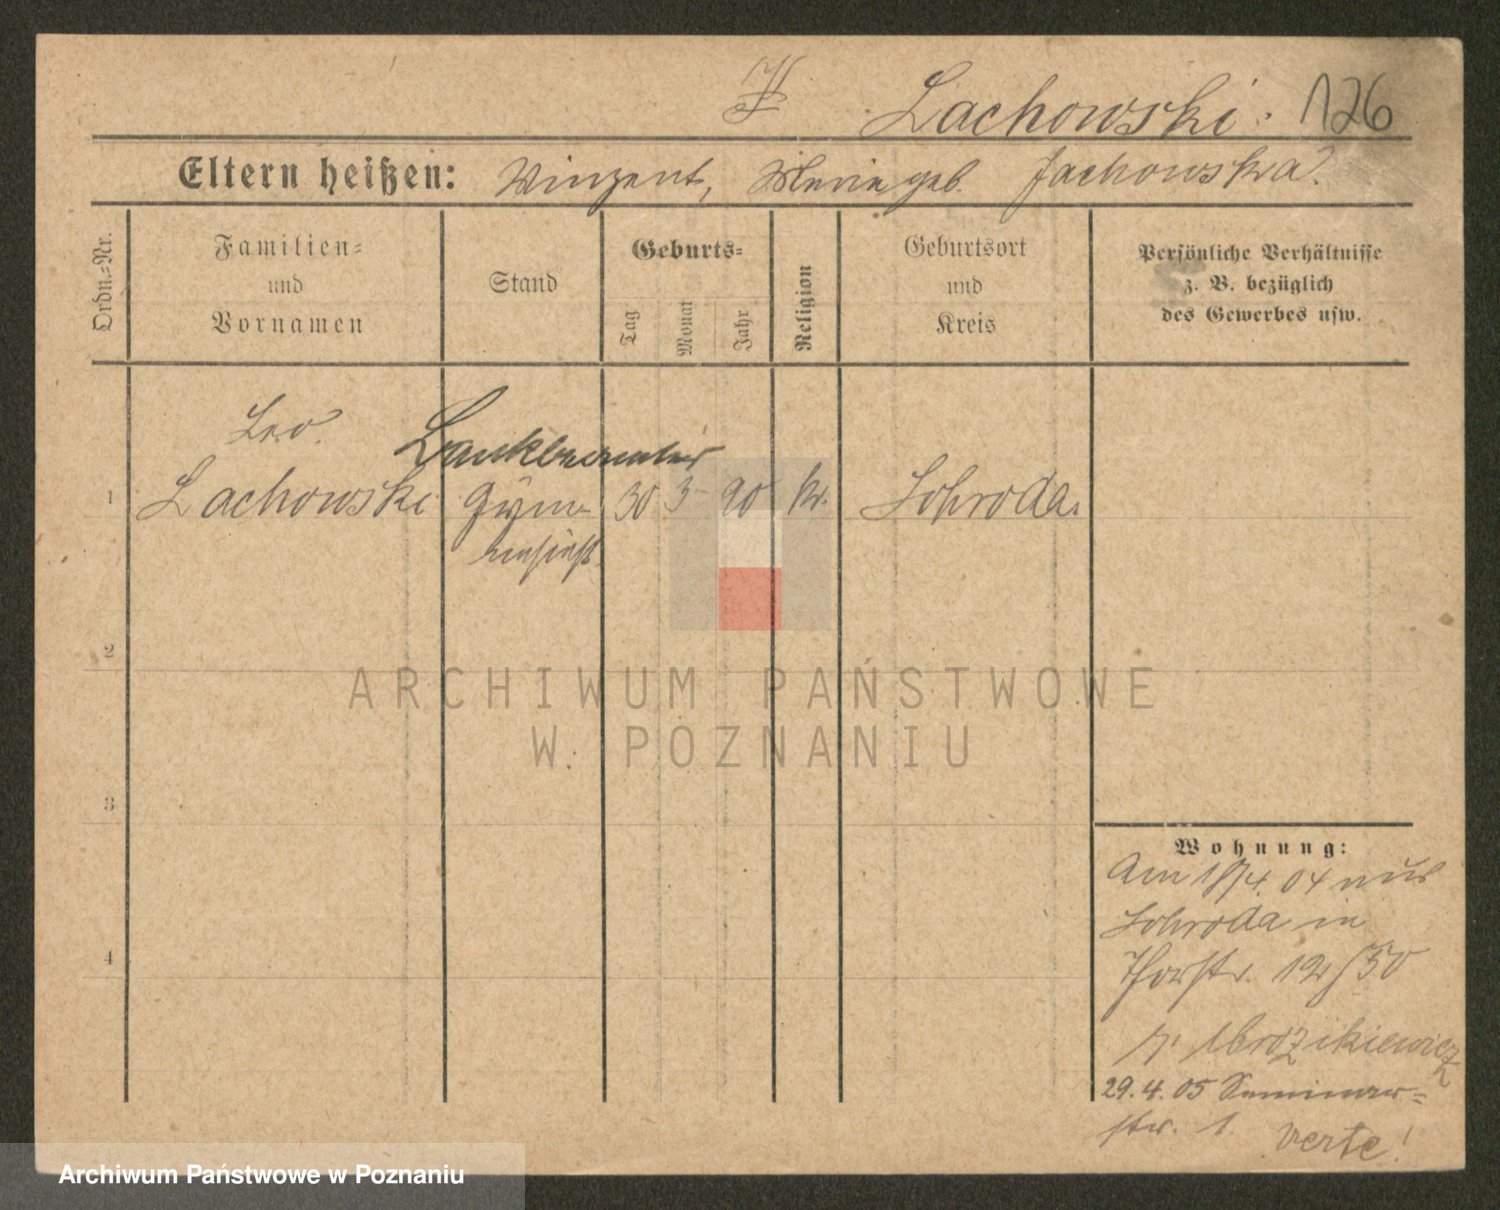 Lachowski. 126
Eltern heißen: Winzent, Marie geb. Jachowska.
Ordn.-Nr.
Familien-
und
Vornamen
Stand
Geburts-
Tag
Monat
Jahr
Religion
Geburtsort
und
Kreis
Persönliche Verhältnisse
z. B. bezüglich
des Gewerbes usw.
Leo
Bankbeamter
1 Lachowski Gym- 30 3 90 k. Schroda
nasiast
2
3
4
ARCHIWUM PAŃSTWOWE
W POZNANIU
Wohnung:
Am 18/4. 04 aus
Schroda in
Thorstr. 12
b. Mrozikiewicz
29. 4. 05 Seminar-
str. 1. verte!
Archiwum Państwowe w Poznaniu